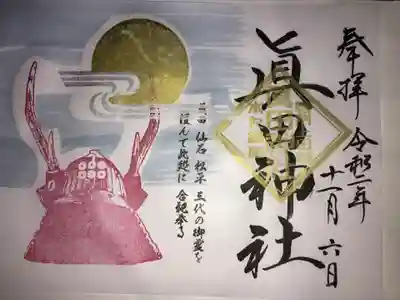 奉拝 令和二年
十一月 六日
眞田神社
真田 仙石 松平 三代の御霊を
此処に 合祀奉る